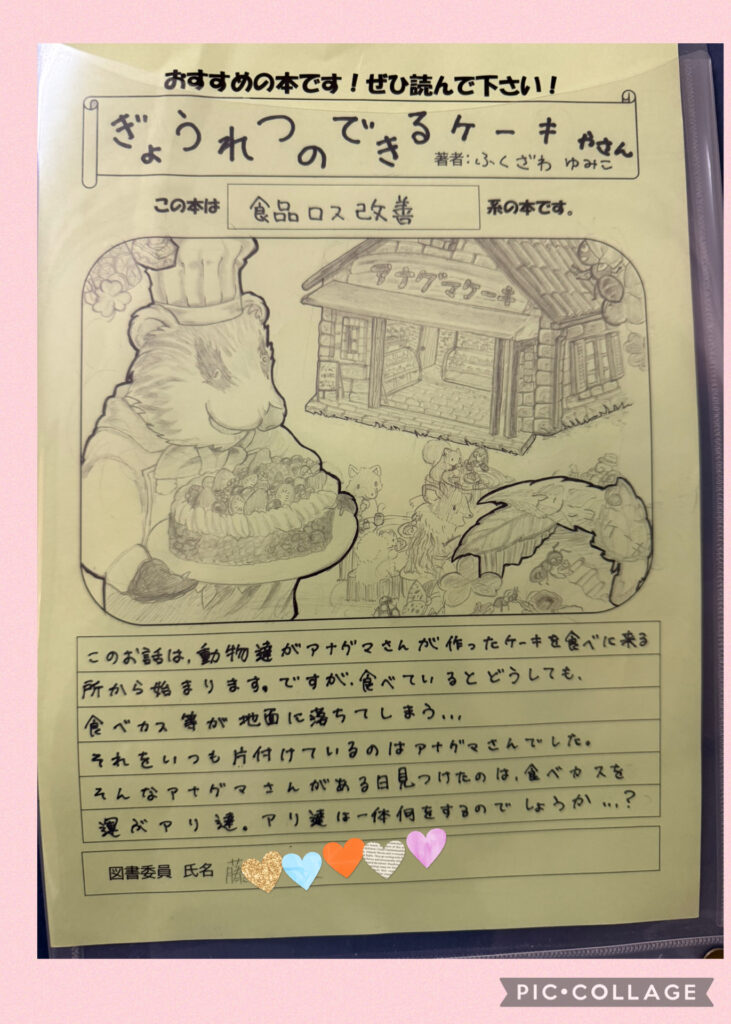 おすすめの本です！ぜひ読んで下さい！
ぎょうれつのできるケーキやさん
著者：ふくざわ ゆみこ
この本は 食品ロス改善 系の本です。
アナグマケーキ
このお話は、動物達がアナグマさんが作ったケーキを食べに来る
所から始まります。ですが、食べているとどうしても、
食べカス等が地面に落ちてしまう...
それをいつも片付けているのはアナグマさんでした。
そんなアナグマさんがある日見つけたのは、食べカスを
運ぶアリ達。アリ達は一体何をするのでしょうか...?
図書委員 氏名 藤
PIC•COLLAGE